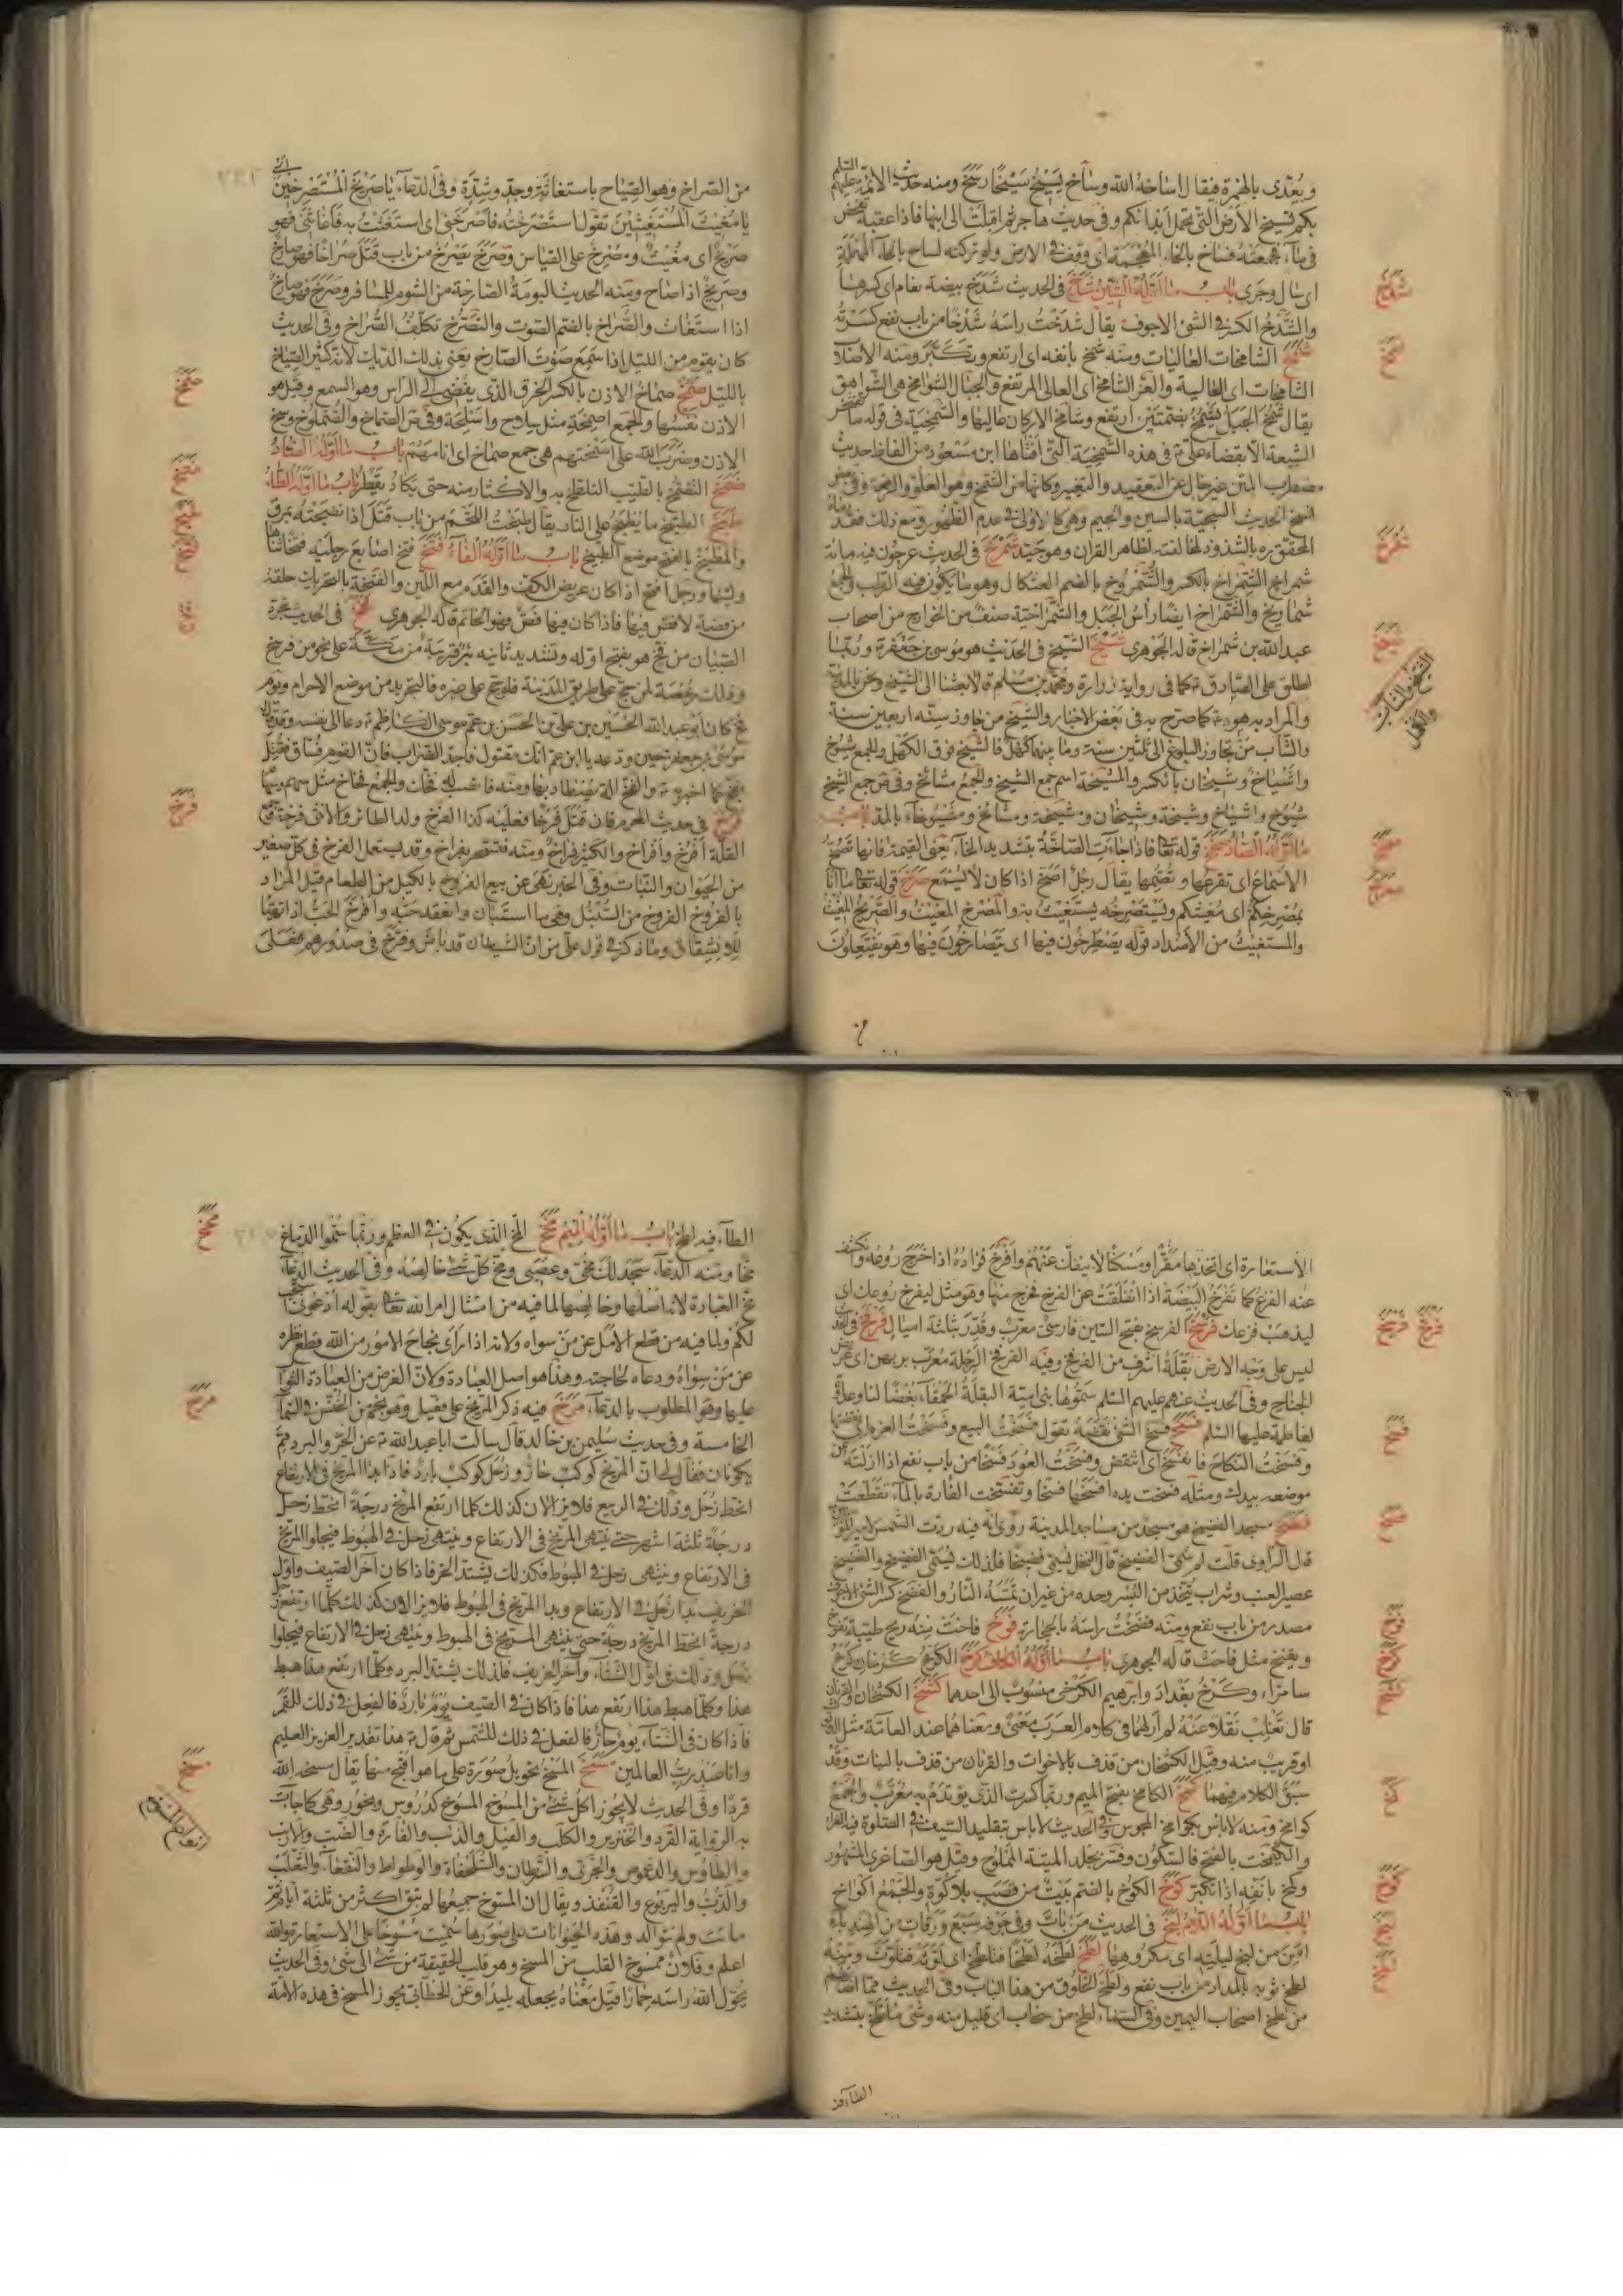 ويعدى بالهمزة فيقال اساخه الله وساخ يسيخ سيخا رسخ ومنه حديث
بكم تسيخ الارض التي تحمل ابدانكم وفي حديث هاجر ثم اقبلت الى ابنها فاذا عقبه
في ماء فجمعته فساخ بالخاء المعجمة اى وقف في الارض ولو تركته لساح بالحاء المهملة
اى سال وجرى باب ما اوله الشين شدخ في الحديث شدخ بيضة نعام اى كسرها
والشدخ الكسر في الشئ الاجوف يقال شدخت راسه شدخا من باب نفع كسرته
شمخ الشامخات العاليات ومنه شمخ بانفه اى ارتفع وتكبر ومنه الاصلاب
الشامخات اى العالية والعز الشامخ اى العالى المرتفع والجبال الشوامخ هي الشواهق
يقال شمخ الجبل يشمخ بفتحتين ارتفع وشامخ الاركان عاليها والشمخية في قوله
الشيعة الا بقضاء على في هذه الشمخية التي افتاها ابن مسعود من الفاظ حديث
مضطرب المتن غير خال عن التعقيد والتغير وكانها من الشمخ وهو العلو والرفعة وفي
نسخ الحديث السجية بالسين والجيم وهي كالاولى في عدم الظهور ومع ذلك فقد
المحقق ره بالشذوذ لمخالفته لظاهر القران وهو جيد شمرخ في الحديث عرجون فيه مائة
شمراخ الشمراخ بالكسر والشمروخ بالضم العثكال وهو ما يكون فيه الرطب والجمع
شماريخ والشمراخ ايضا راس الجبل والشمراخية صنف من الخوارج من اصحاب
عبد الله بن شمراخ قاله الجوهري شيخ الشيخ في الحديث هو موسى بن جعفر وربما
اطلق على الصادق كما في رواية زرارة ومحمد بن مسلم قالا بعثنا الى الشيخ ونحن بالمدينة
والمراد به هو كما صرح به في بعض الاخبار والشيخ من جاوز سنه اربعين سنة
والشاب من تجاوز البلوغ الى ثلثين سنة وما بينهما كهل فالشيخ فوق الكهل والجمع شيوخ
واشياخ وشيخان بالكسر والمشيخة اسم جمع الشيخ والجمع مشائخ وفي ص جمع الشيخ
شيوخ واشياخ وشيخة وشيخان ومشيخة ومشائخ ومشيوخاء بالمد باب
ما اوله الصاد صخخ قوله تعا فاذا جاءت الصاخة بتشديد الخاء يعنى القيمة فانها تصخ
الاسماع اى تقرعها وتصمها يقال رجل اصخ اذا كان لا يسمع صرخ قوله تعا ما انا
بمصرخكم اى مغيثكم ويستصرخه يستغيث به والمصرخ المغيث والصريخ المغيث
والمستغيث من الاضداد قوله يصطرخون فيها اى يتصارخون فيها وهو يفتعلون
من الصراخ وهو الصياح باستغاثة وجد وشدة وفي الدعاء يا صريخ المستصرخين
يا مغيث المستغيثين تقول استصرخته فاصرخني اى استغثت به فاغاثني فهو
صريخ اى مغيث ومصرخ على القياس وصرخ يصرخ من باب قتل صراخا فهو صارخ
وصريخ اذا صاح ومنه الحديث البومة الصارخة من الشوم للمسافر وصرخ فهو صارخ
اذا استغاث والصراخ بالضم الصوت والتصرخ تكلف الصراخ وفي الحديث
كان يقوم من الليل اذا سمع صوت الصارخ يعنى بذلك الديك لانه كثير الصياح
بالليل صمخ صماخ الاذن بالكسر الخرق الذي يفضى الى الراس وهو السمع وقيل هو
الاذن نفسها والجمع اصمخة مثل سلاح واسلحة وفي ص الصماخ والصملوخ وسخ
الاذن وضرب الله على اصمختهم هي جمع صماخ اى انامهم باب ما اوله الضاد
ضمخ التضمخ بالطيب التلطخ به والاكثار منه حتى يكاد يقطر باب ما اوله الطاء
طبخ الطبيخ ما يطبخ على النار يقال طبخت اللحم من باب قتل اذا نضجته بمرق
والمطبخ بالفتح موضع الطبيخ باب ما اوله الفاء فتخ فتخ اصابع رجليه
ولينها ورجل افتخ اذا كان عريض الكف والقدم مع اللين والفتخة بالتحريك حلقة
من فضة لا فص فيها فاذا كان فيها فص فهو الخاتم قاله الجوهري فخخ في الحديث تجرد
الصبيان من فخ هو بفتح اوله وتشديد ثانيه بئر قريبة من مكة على نحو من فرسخ
وذلك رخصة لمن حج على طريق المدينة فلو حج على غيره فالتجريد من موضع الاحرام ويوم
فخ كان ابو عبد الله الحسين بن على بن الحسن بن عم موسى الكاظم دعا الى نفسه
موسى بن جعفر حين ودعه يا ابن عم انك مقتول فاجد الضراب فان القوم فساق فقتل
بفخ كما اخبر به والفخ الة يصطاد بها ومنه والجمع فخاخ مثل سهم وسهام
فرخ في حديث المحرم فان قتل فرخا فعليه كذا الفرخ ولد الطائر والانثى فرخة
القلة افرخ وافراخ والكثير فراخ ومنه وقد يستعمل الفرخ في كل صغير
من الحيوان والنبات وفي الخبر نهى عن بيع الفروخ بالكيل من الطعام قيل المراد
بالفروخ الفروخ من السنبل وهي ما استبان وانعقد حبه وافرخ الحب اذا تهيا
للانشقاق وما ذكر في قول على من ان الشيطان قد باض وفرخ في صدورهم فعلى
الاستعارة اى اتخذها مقرا ومسكنا لا ينفك عنهم وافرخ فؤاده اذا خرج روعه
عنه الفزع كما تفرخ البيضة اذا انفلقت عن الفرخ فخرج منها وهو مثل ليفرخ روعك اى
ليذهب فزعك فرسخ الفرسخ بفتح السين فارسى معرب وقدر بثلثة اميال فرفخ
ليس على وجه الارض بقلة اشرف من الفرفخ وفيه الفرفخ الرجلة معرب پرپهن اى
الجناح وفي الحديث عنهم عليهم السلم سموها بنى امية البقلة الحمقاء بغضا لنا وعداوة
لفاطمة عليها السلم فسخ فسخ الشئ نقضه تقول فسخت البيع وفسخت العزم
وفسخت النكاح فانفسخ اى انتقض وفسخت العود فسخا من باب نفع اذا ازلته
موضعه بيدك ومثله فسخت يده افسخها فسخا وتفسخت الفارة بالماء تقطعت
فضخ مسجد الفضيخ هو مسجد من مساجد المدينة روى انه فيه ردت الشمس
قال الراوى قلت لم سمى الفضيخ قال النخل يسمى فضيخا فلذلك يسمى الفضيخ والفضيخ
عصير العنب وشراب يتخذ من البسر وحده من غير ان تمسه النار والفضخ كسر الشئ الاجوف
مصدر من باب نفع ومنه فضخت راسه بالحجارة فوخ فاخت منه ريح طيبة تفوخ
ويفيخ مثل فاحت قاله الجوهري باب ما اوله الكاف كرخ الكرخ كرخان كرخ
سامراء وكرخ بغداد وابرهيم الكرخي منسوب الى احدهما كشخ الكشخان والقرنان
قال تغلب نقلا عنه لم ارهما في كلام العرب بمعنى ومعناهما عند العامة مثل الديوث
او قريب منه وقيل الكشخان من قذف بالاخوات والقرنان من قذف بالبنات وقد
سبق الكلام فيهما كمخ الكامخ بفتح الميم وربما كسرت الذي يؤتدم به معرب والجمع
كوامخ ومنه لا باس بكوامخ المجوس وفي الحديث لا باس بتقليد السيف في الصلوة فيه
والكيمخت بالفتح فالسكون وفسر بجلد الميتة المملوح وقيل هو الصاغرى المشهور
وكمخ بانفه اذا تكبر كوخ الكوخ بالضم بيت من قصب بلا كوة والجمع اكواخ
باب ما اوله اللام لبخ في الحديث من بات وفي جوفه سبع ورقات من الهندباء
امن من لبخ ليلته اى مكروهها لطخ لطخه لطخا فتلطخ اى لوثه فتلوث ومنه
لطخ ثوبه بالمداد من باب نفع ولطخ الخلوق من هذا الباب وفي الحديث مما
من لطخ اصحاب اليمين وفي السماء لطخ من سحاب اى قليل منه وشئ ملطخ بتشديد
الطاء
الطاء فيه لطخ باب ما اوله الميم مخخ المخ الذي يكون في العظم وربما سموا الدماغ
مخا ومنه الدعاء سجد لك مخى وعصبى ومخ كل شئ خالصه وفي الحديث الدعاء
مخ العبادة لانه اصلها وخالصها لما فيه من امتثال امر الله تعا بقوله ادعونى استجب
لكم ولما فيه من قطع الامل عن من سواه ولانه اذا راى نجاح الامور من الله قطع نظره
عن من سواه ودعاه لحاجته وهذا هو اصل العبادة ولان الغرض من العبادة الثواب
عليها وهو المطلوب بالدعاء مرخ فيه ذكر المريخ على فعيل وهو نجم من الخنس في السماء
الخامسة وفي حديث سليمن بن خالد قال سالت ابا عبد الله عن الحر والبرد مم
يكونان فقال لي ان المريخ كوكب حار وزحل كوكب بارد فاذا بدا المريخ في الارتفاع
انحط زحل وذلك في الربيع فلا يزالان كذلك كلما ارتفع المريخ درجة انحط زحل
درجة ثلثة اشهر حتى ينتهى المريخ في الارتفاع وينتهى زحل في الهبوط فيجلوا المريخ
في الارتفاع وينتهى زحل في الهبوط فكذلك يشتد الحر فاذا كان اخر الصيف واول
الخريف بدا زحل في الارتفاع وبدا المريخ في الهبوط فلا يزالان كذلك كلما ارتفع زحل
درجة انحط المريخ درجة حتى ينتهى المريخ في الهبوط وينتهى زحل في الارتفاع فيجلوا
زحل وذلك في اول الشتاء واخر الخريف فلذلك يشتد البرد وكلما ارتفع هذا هبط
هذا وكلما هبط هذا ارتفع هذا فاذا كان في الصيف يوم بارد فالفعل في ذلك للقمر
فاذا كان في الشتاء يوم حار فالفعل في ذلك للشمس ثم قال هذا تقدير العزيز العليم
وانا عبد رب العالمين مسخ المسخ تحويل صورة على ما هو اقبح منها يقال مسخه الله
قردا وفي الحديث لا يجوز اكل شئ من المسوخ المسوخ كدروس ونحوه وهي كما جاءت
به الرواية القرد والخنزير والكلب والفيل والذئب والفارة والضب والارنب
والطاؤس والدعموص والجرى والسرطان والسلحفاة والوطواط والنقعاء والثعلب
والدب واليربوع والقنفذ ويقال ان المسوخ جميعها لم تبق اكثر من ثلثة ايام ثم
ماتت ولم تتوالد وهذه الحيوانات على صورها سميت مسوخا على الاستعارة والله
اعلم وفلان ممسوخ القلب من المسخ وهو قلب الحقيقة من شئ الى شئ وفي الحديث
يحول الله راسه حمارا قيل معناه يجعله بليدا وعن الخطابي يجوز المسخ في هذه الامة